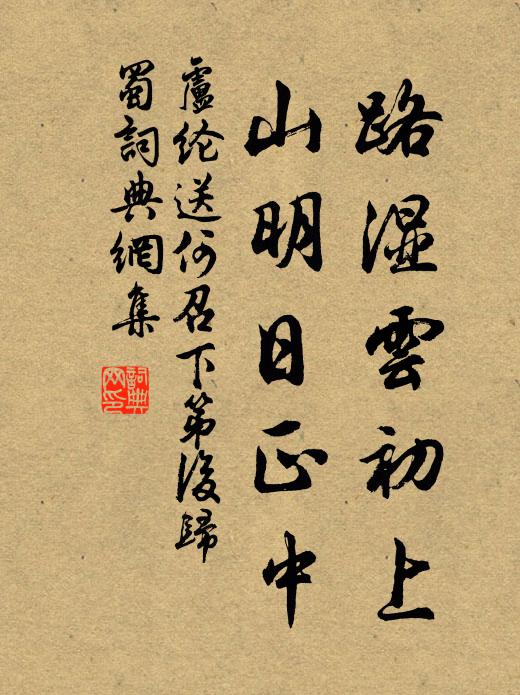 路湿雲初上
山明日正中
盧纶送何召下第後歸
蜀詞典網集
詞典
网印